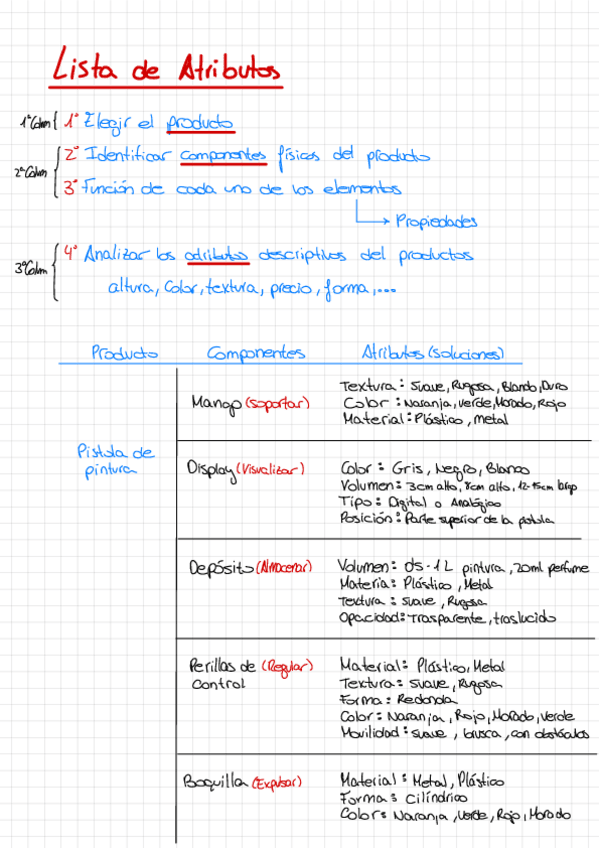 Lista de Atributos
1ªColum { 1º Elegir el producto
2ªColum { 2º Identificar componentes físicos del producto
3º Función de cada uno de los elementos
Propiedades
3ªColum { 4º Analizar los atributos descriptivos del productos
altura, Color, textura, precio, forma,...
Producto Componentes Atributos (soluciones)
Pistola de pintura
Mango (soportar)
Textura: Suave, Rugosa, Blando, Duro
Color: Naranja, verde, Morado, Rojo
Material: Plástico, metal
Display (Visualizar)
Color: Gris, Negro, Blanco
Volumen: 3cm alto, 8cm alto, 12-15cm largo
Tipo: Digital o Analógico
Posición: Parte superior de la pistola
Depósito (Almacenar)
Volumen: 0'5-1L pintura, 20ml perfume
Materia: Plástico, Metal
Textura: Suave, Rugosa
Opacidad: Trasparente, traslucido
Perillas de (Regular)
control
Material: Plástico, Metal
Textura: Suave, Rugosa
Forma: Redonda
Color: Naranja, Rojo, Morado, verde
Movilidad: suave, brusca, con obstáculos
Boquilla (Expulsar)
Material: Metal, Plástico
Forma: Cilíndrico
Color: Naranja, verde, Rojo, Morado